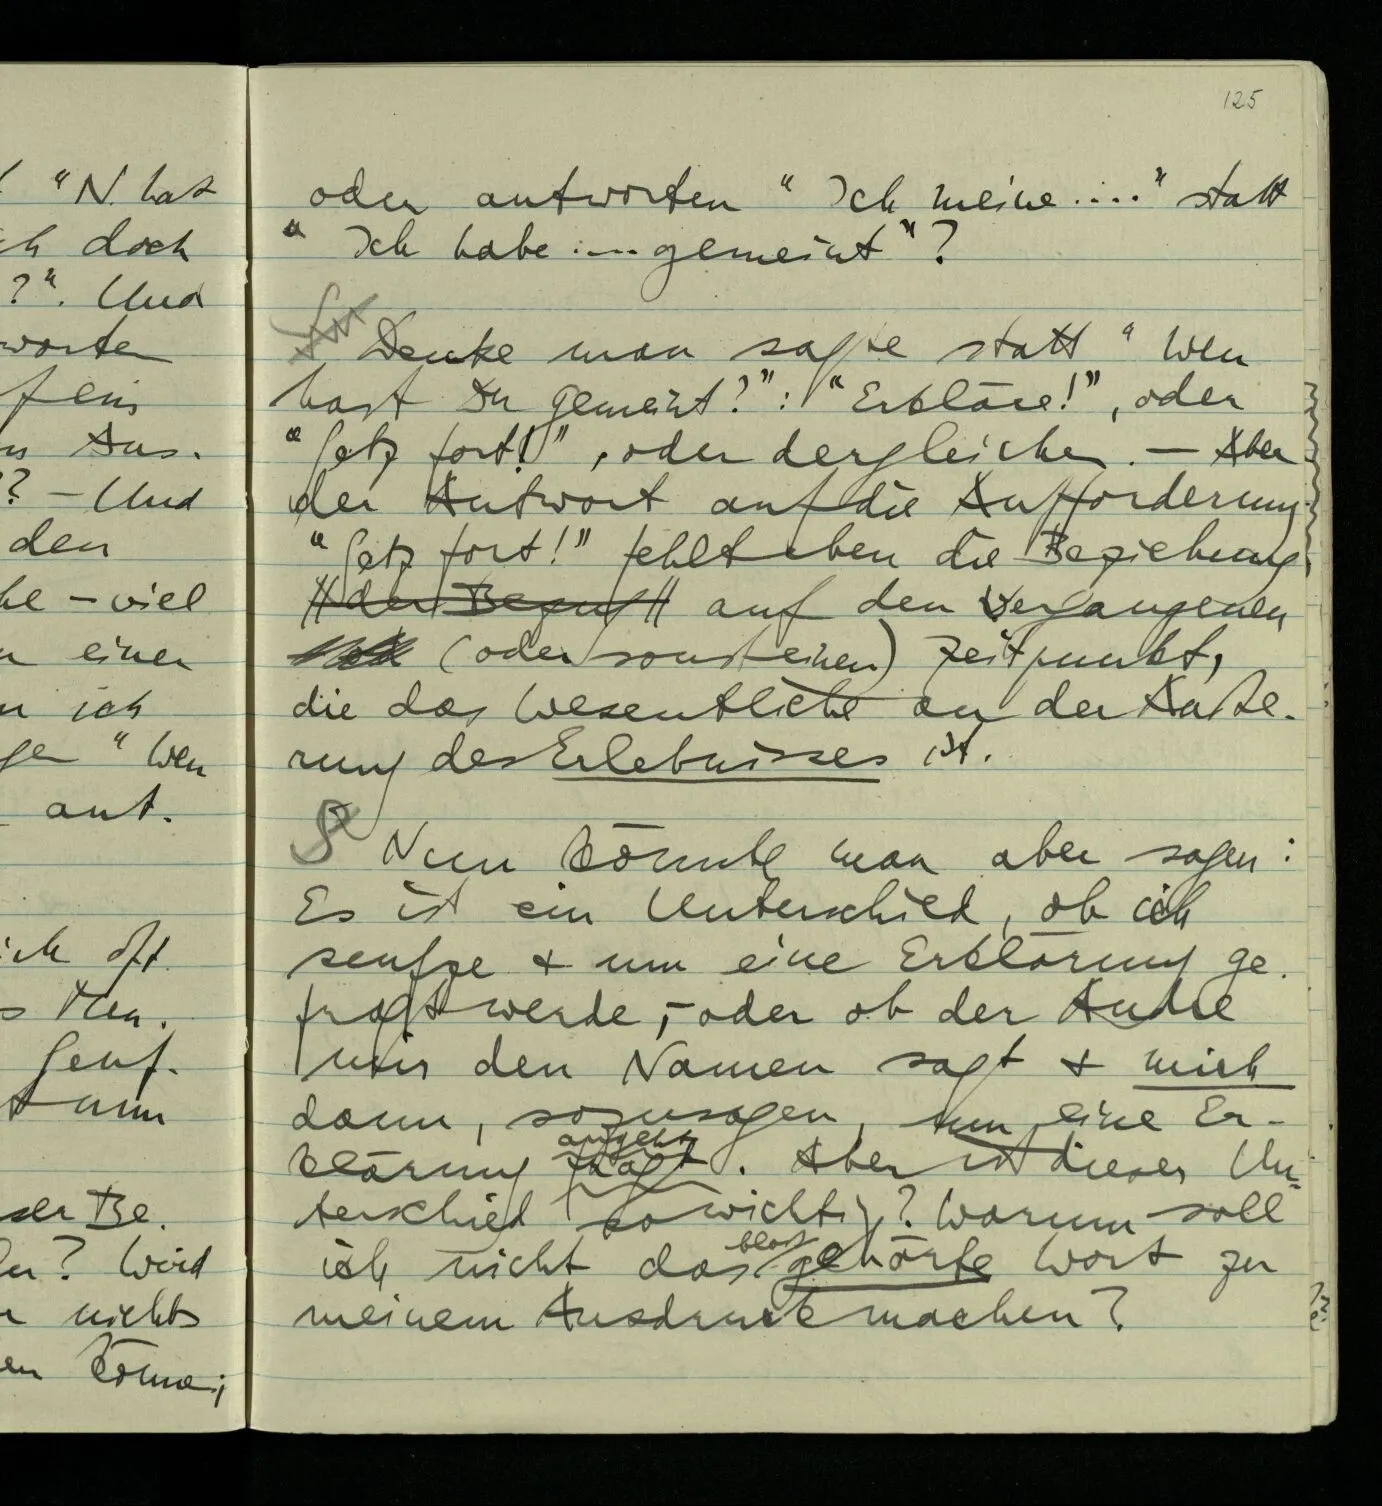 125
" N. hat
ch doch
?". Und
worten
fein
Aus-
? – Und
den
he – viel
einer
ich
gen " Wen
ant-
ich oft
Men-
Seuf-
nun
ser Be-
? Wird
nichts
en könne;
oder antworten " Ich meine ...." statt
" Ich habe .... gemeint"?
Denke man sagte statt " Wen
hast Du gemeint?": "Erkläre!", oder
"Setz fort!", oder dergleichen. – Aber
der Antwort auf die Aufforderung
"Setz fort!" fehlt eben die Beziehung
//der Bezug// auf den vergangenen
(oder sonst einen) Zeitpunkt,
die das Wesentliche an der Äuße-
rung des Erlebnisses ist.
S Nun könnte man aber sagen:
Es ist ein Unterschied, ob ich
seufze & um eine Erklärung ge-
fragt werde, – oder ob der Andre
mir den Namen sagt & mich
dann, sozusagen, um eine Er-
klärung angeht fragt. Aber ist dieser Un-
terschied so wichtig? Warum soll
ich nicht das bloß gehörte Wort zu
meinem Ausdruck machen?